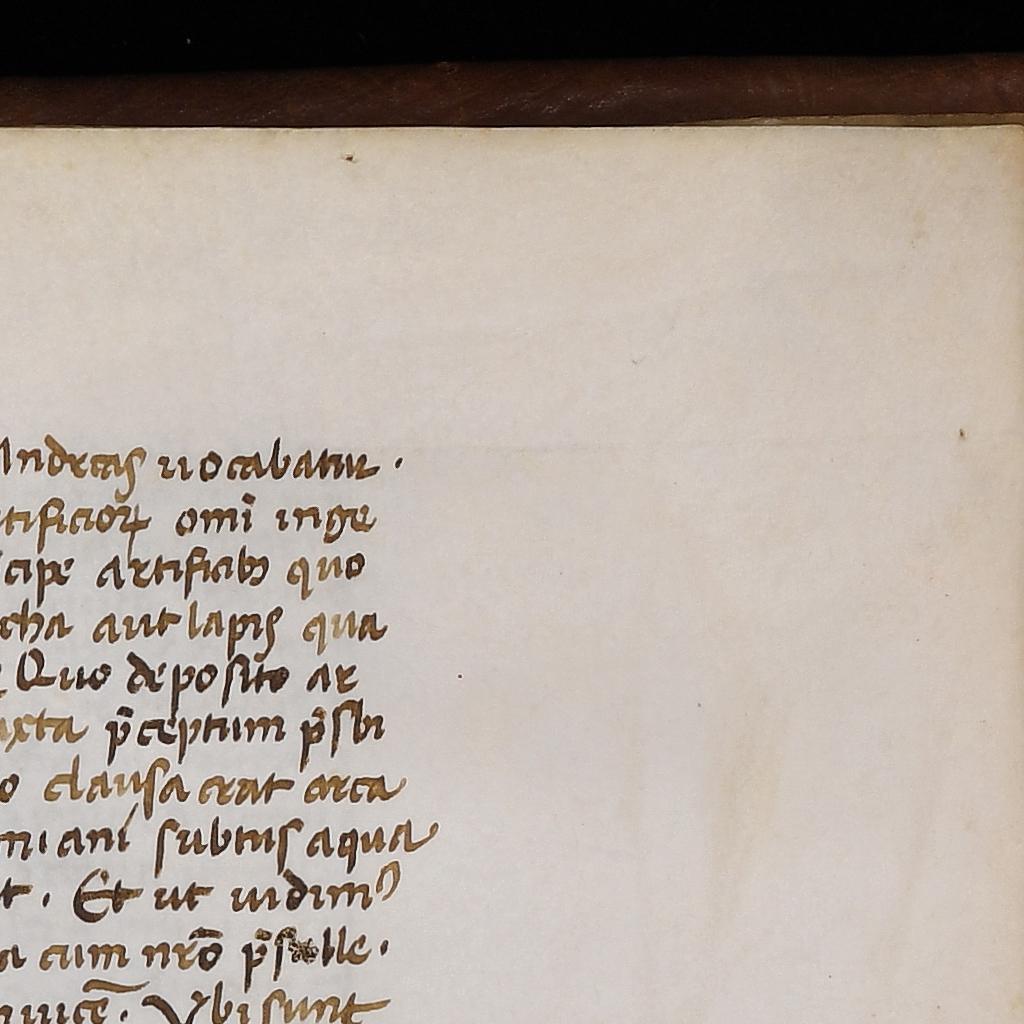 Andreas uocabatur .
tificioꝝ omĩ inge
cipe artificib; quo
cha aut lapis qua
Quo deposito ar
uxta p̃ceptum p̃sbi
o clausa erat arca
miani subtus aqua
t . Et ut uidimꝰ
a cum nrõ p̃s lle .
inuicẽ . Vbi sunt